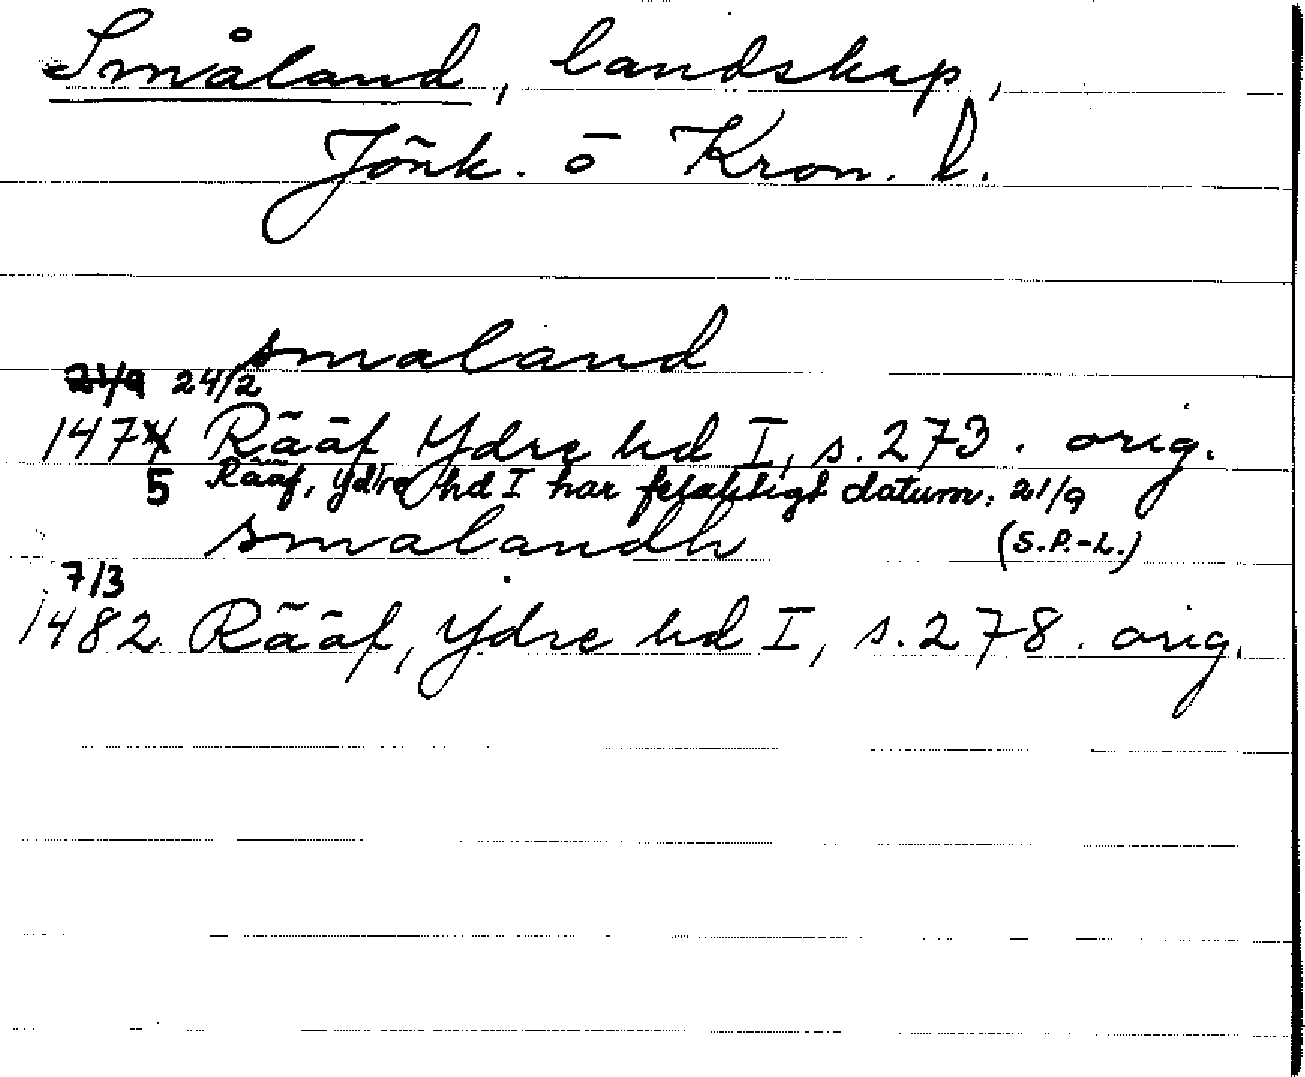 Småland, landskap,
Jönk. o Kron. l.
smaland
21/9 24/2
1474 Rääf Ydre hd I, s. 273. orig.
5 Rääf, Ydre hd I har felaktigt datum: 21/9
smalandh (S.P.-L.)
7/3
1482 Rääf, Ydre hd I, s. 278. orig.